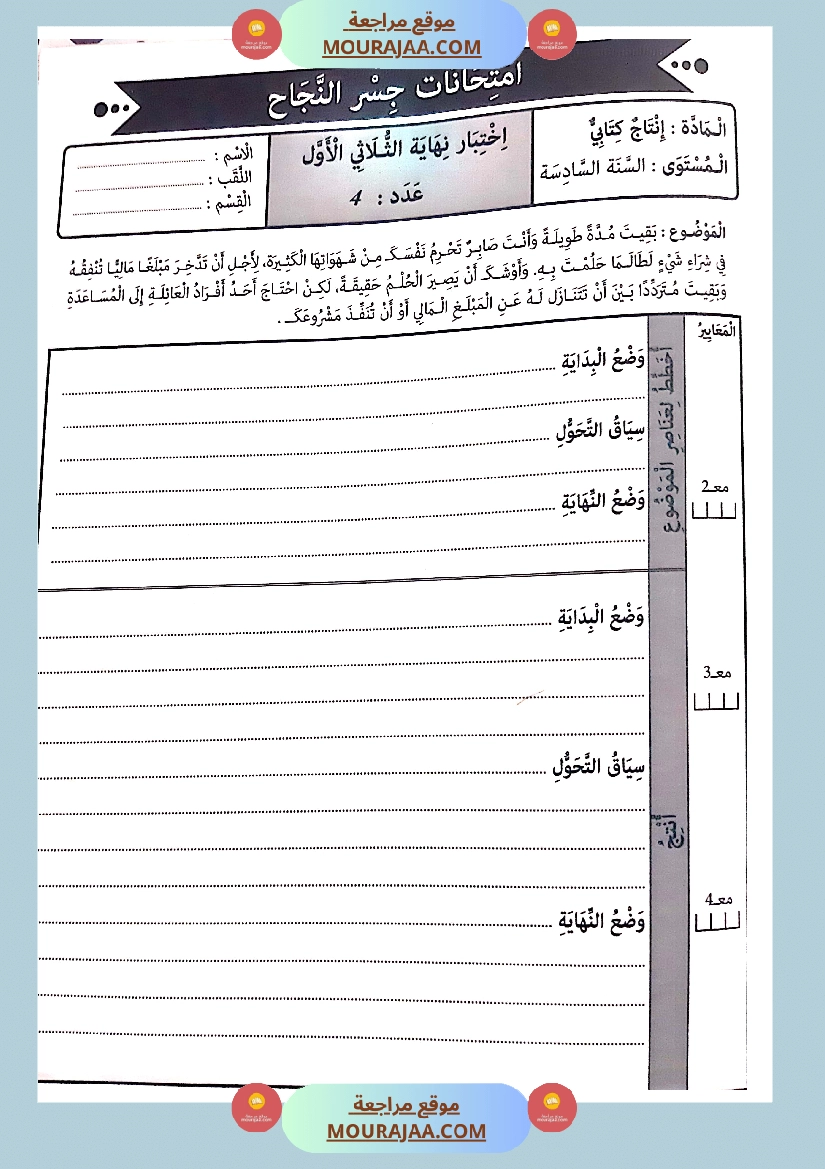 موقع مراجعة
MOURAJAA.COM
امتِحَانات جِسْر النَّجَاح
الْمَادَّة : إِنْتَاجٌ كِتَابِيٌّ
الْمُسْتَوَى : السَّنَة السَّادِسَة
اِخْتِبَار نِهَايَة الثُّلَاثِي الْأَوَّل
عَدَد : 4
الْاسْم :
اللَّقَب :
الْقِسْم :
الْمَوْضُوع : بَقِيتَ مُدَّةً طَوِيلَةً وَأَنْتَ صَابِرٌ تَحْرِمُ نَفْسَكَ مِنْ شَهَوَاتِهَا الْكَثِيرَة، لِأَجْلِ أَنْ تَدَّخِرَ مَبْلَغًا مَالِيًّا تُنْفِقُهُ
فِي شِرَاءِ شَيْءٍ لَطَالَمَا حَلُمْتَ بِهِ. وَأَوْشَكَ أَنْ يَصِيرَ الْحُلْمُ حَقِيقَةً، لَكِنْ احْتَاجَ أَحَدُ أَفْرَادُ الْعَائِلَةِ إِلَى الْمُسَاعَدَةِ
وَبَقِيتَ مُتَرَدِّدًا بَيْنَ أَنْ تَتَنَازَل لَهُ عَنِ الْمَبْلَغِ الْمَالِي أَوْ أَنْ تُنَفِّذَ مَشْرُوعَكَ .
الْمَعَايِيرُ
أُخَطِّطُ لِعَنَاصِرِ الْمَوْضُوعِ
وَضْعُ الْبِدَايَةِ
سِيَاقُ التَّحَوُّلِ
معـ2
وَضْعُ النِّهَايَةِ
وَضْعُ الْبِدَايَةِ
معـ3
سِيَاقُ التَّحَوُّلِ
أُنْتِجُ
معـ4
وَضْعُ النِّهَايَةِ
موقع مراجعة
MOURAJAA.COM